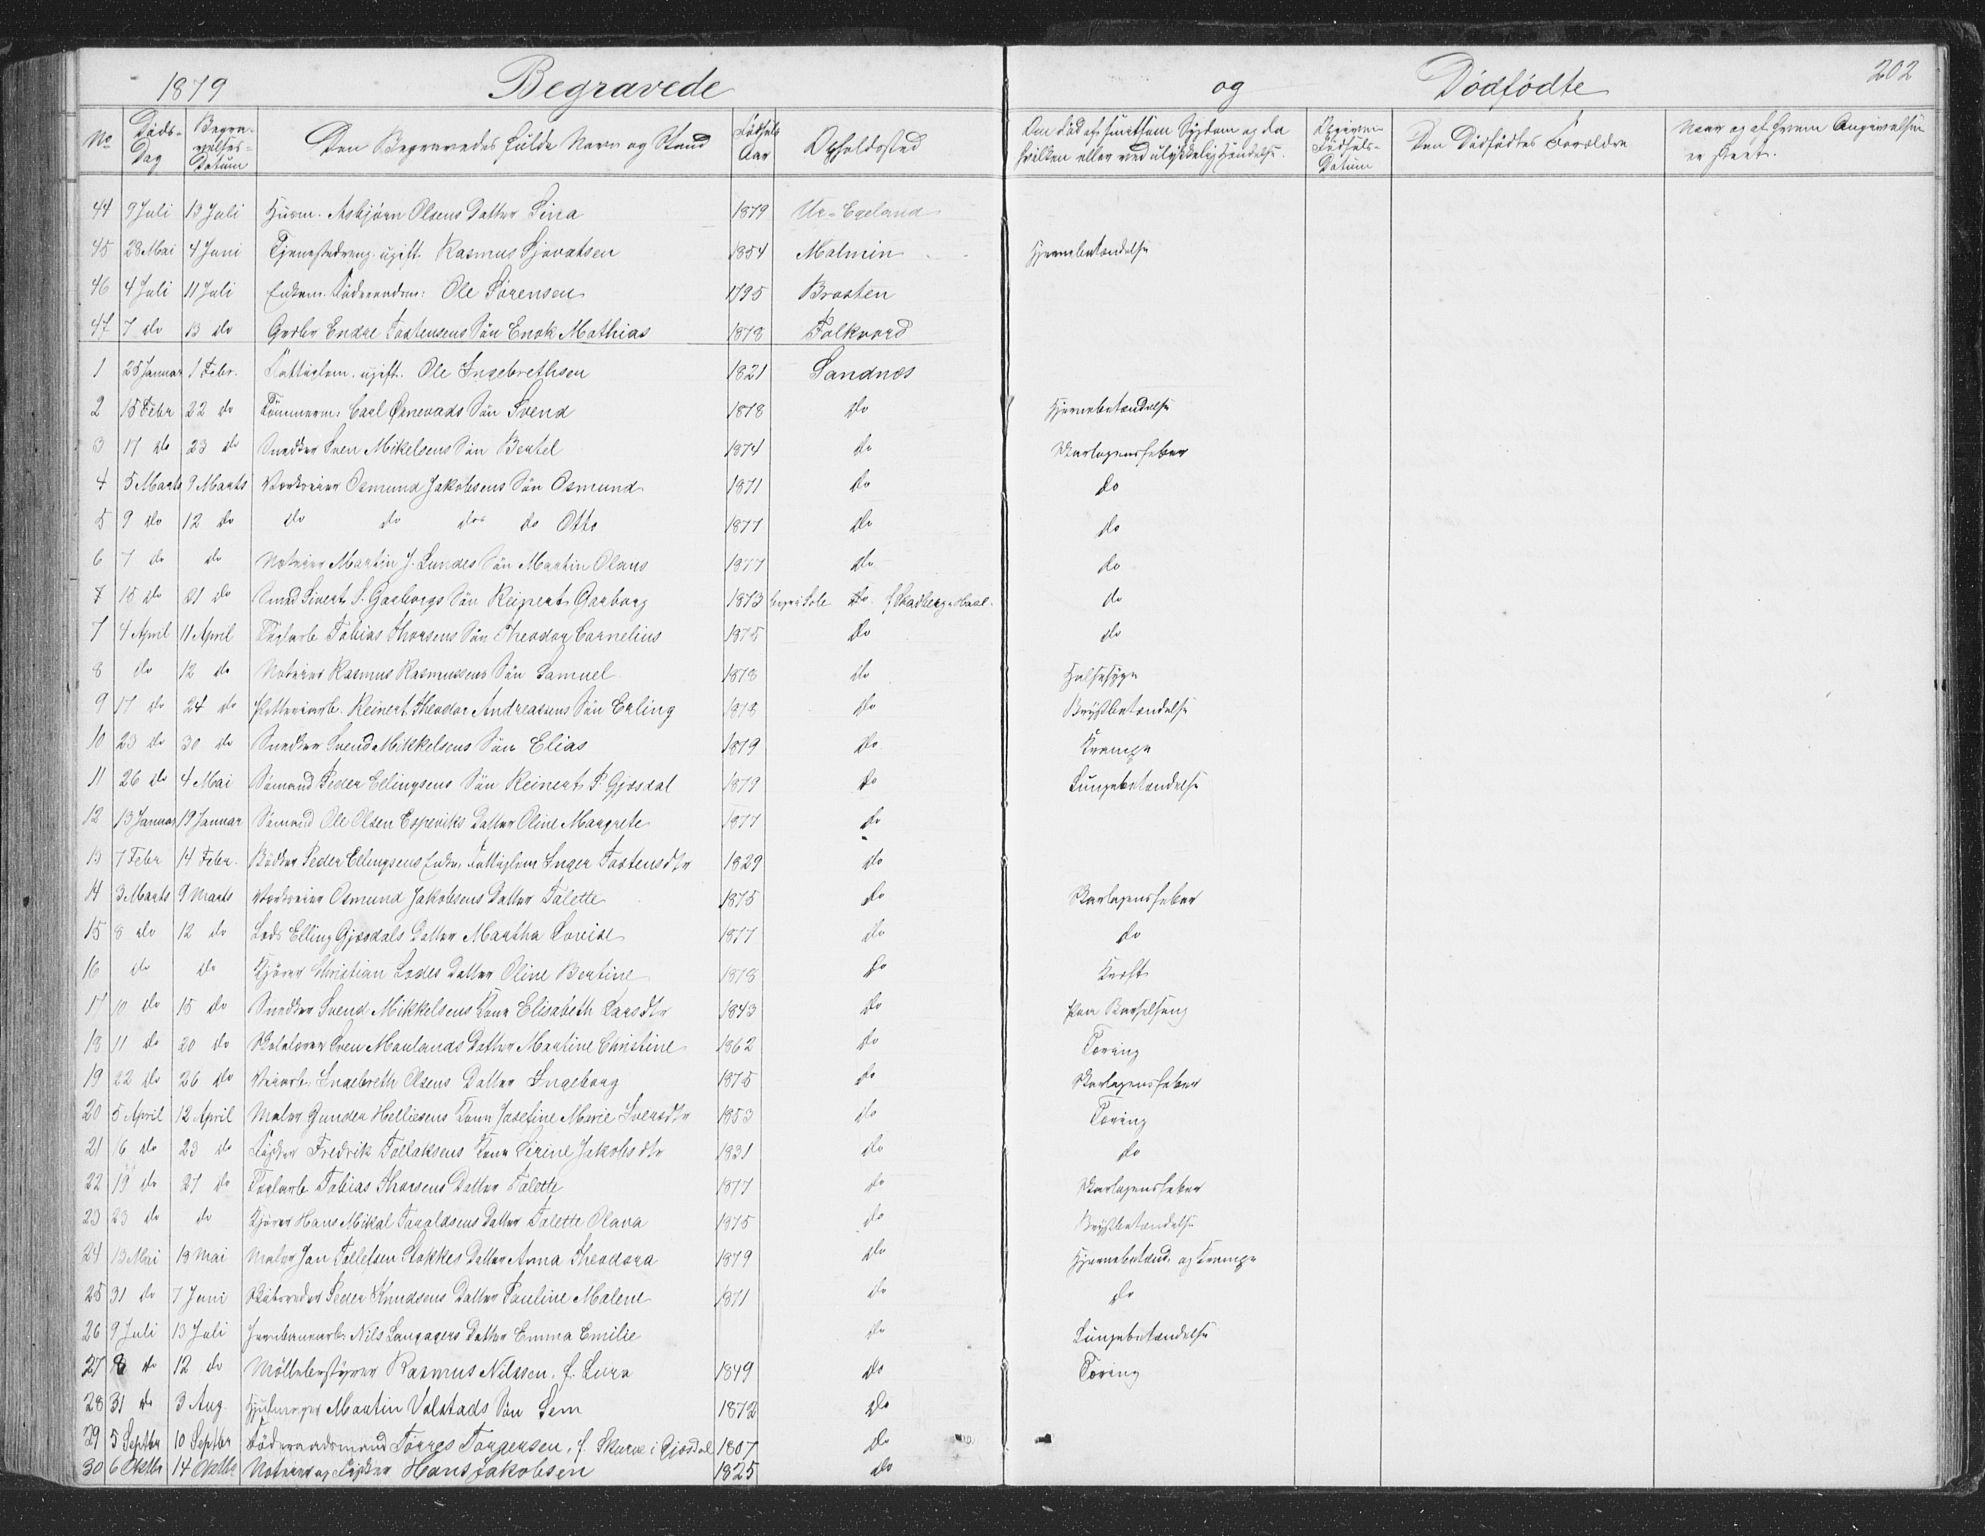 1879 Begravede og Dødfødte 202
No Døds-Dag Begra-velses-Datum Den Begravedes fulde Navn og Stand Fødsels Aar Opholdssted Om død af smitsom Sygdom og da hvilken eller ved ulykkelig Hændelse. Opgiven Fødsels-Datum Den Dødfødtes Forældre Naar og af hvem Angivelsen er skeet.
44 9 Juli 13 Juli Husm. Asbjørn Olsens Datter Sina 1879 Ur-Egeland
45 28 Mai 4 Juni Tjenestedreng ugift Rasmus Sjovatsen 1854 Malmin Hjernebetændelse
46 4 Juli 11 Juli Enkem. Føderaadsm: Ole Sørensen 1795 Brasten
47 7 do 13 do Grdbr Endre Tostensens Søn Enok Mathias 1878 Folkvord
1 25 Januar 1 Febr. Fattiglem. ugift. Ole Ingebrethsen 1821 Sandnæs
2 15 Febr 22 do Tømmerm: Carl Ørnevads Søn Svend 1878 do Hjernebetændelse
3 17 do 23 do Snedker Sven Mikelsens Søn Bertel 1874 do Skarlagensfeber
4 5 Marts 9 Marts Værtseier Osmund Jakobsens Søn Osmund 1871 do do
5 9 do 12 do do do do do Otto 1877 do do
6 7 do do Noteier Martin J. Lundes Søn Martin Olaus 1877 do do
7 15 do 21 do Smed Sivert S. Garborgs Søn Reinert Garborg 1873 begr. i Sole do do
7 4 April 11 April Teglarb Tobias Thorsens Søn Theodor Cornelius 1875 do do
8 do 12 do Noteier Rasmus Rasmussens Søn Samuel 1878 do Halssyge
9 17 do 24 do Potteriarb. Reinert Theodor Andreassens Søn Erling 1878 do Brystbetændelse
10 23 do 30 do Snedker Svend Mikkelsens Søn Elias 1879 do Krampe
11 26 do 4 Mai Sømand Peder Ellingsens Søn Reinert P Gjæsdal 1879 do Lungebetændelse
12 13 Januar 19 Januar Sømand Ole Olsen Espeviks Datter Oline Margrete 1877 do
13 7 Febr 14 Febr. Bødker Peder Ellingsens Enke, Fattiglem Inger Tostensdtr 1829 do
14 3 Marts 9 Marts Osmund Jakobsens Datter Talette 1875 do Skarlagensfeber
15 8 do 12 do Lods Elling Gjæsdals Datter Martha Lovise 1877 do do
16 do do Kjører Christian Lodes Datter Oline Bertine 1878 do
17 10 do 15 do Snedker Svend Mikkelsens Kone Elisabeth Larsdtr 1843 do Paa Barselseng
18 11 do 20 do Skolelærer Sven Maulands Datter Martine Christine 1862 do Tæring
19 22 do 26 do Veiarb. Ingebreth Olsens Datter Ingeborg 1875 do Skarlagensfeber
20 5 April 12 April Maler Gunder Helliesens Kone Josefine Marie Svensdtr 1853 do Tæring
21 16 do 23 do Fisker Fredrik Tollaksens Kone Sirine Jakobsdtr 1831 do do
22 19 do 27 do Teglarb Tobias Thorsens Datter Talette 1877 do Skarlagensfeber
23 23 do do Kjører Hans Mikal Torgaldsens Datter Talette Olava 1875 do Brystbetændelse
24 13 Mai 18 Mai Maler Jon Tollefsen Stokkes Datter Anna Theodora 1879 do Hjernebetænd. og Krampe
25 31 do 7 Juni Peder Knudsens Datter Pauline Malene 1871 do do
26 9 Juli 13 Juli Jernbanearb. Nils Langagers Datter Emma Emilie do Lungebetændelse
27 8 do 12 do Møllebestyrer Rasmus Nilssen. f. Lura 1849 do Tæring
28 31 do 3 Aug. Hjulmager Martin Valstads Søn Sem 1872 do
29 5 Septbr 10 Septbr Føderaadsmand Torres Torgersen, f. Skurve i Gjæsdal 1807 do
30 6 Oktbr 14 Oktbr Noteier og Fisker Hans Jakobsen 1825 do